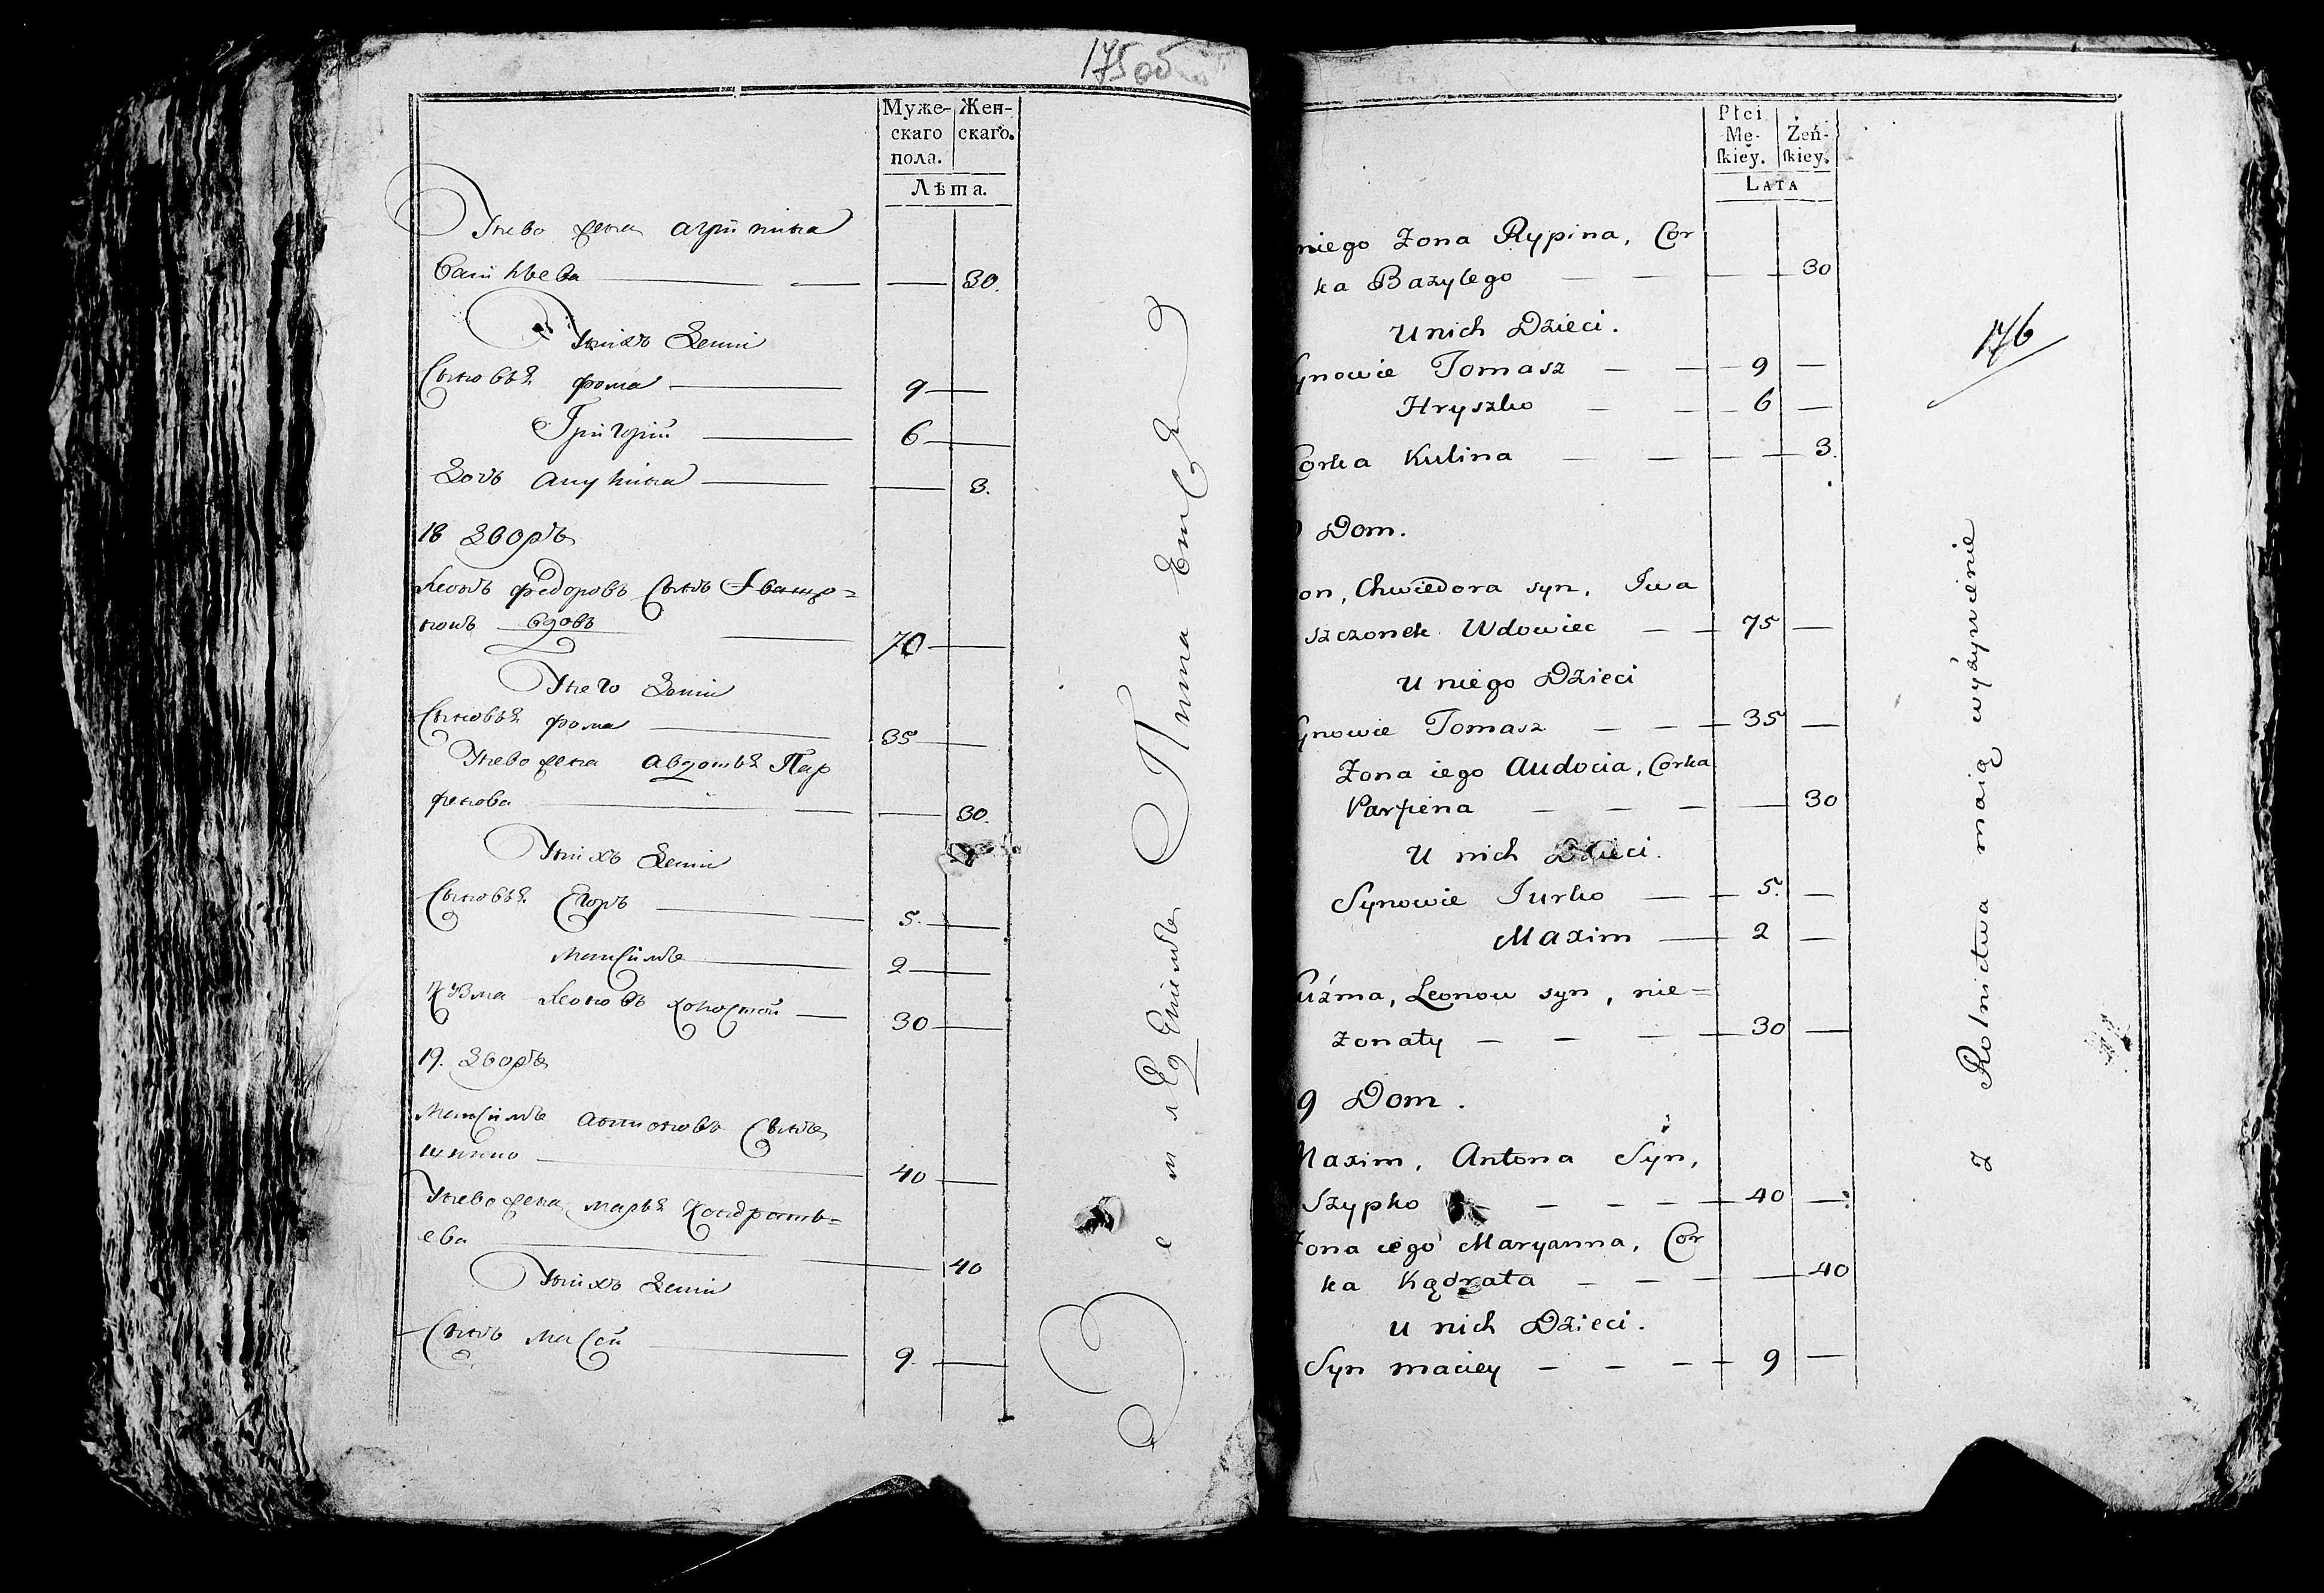 175 об
Муже- Жен-
скаго скаго.
пола.
Лѣта.
Унево жена агрипина
Василѣева 30.
Унихъ Дети
Сыновья фома 9
Григорій 6
Дочь акулина 3.
18 Дворъ
Леонъ федоровъ сынъ Иващо=
нокъ вдовъ 70
Унего Дети
Сыновья фома 35
Унево жена авдотья Пар
фенова 30.
Унихъ Дети
Сыновья Егоръ 5.
Максимъ 2
Кузма Леоновъ холостой 30
19. Дворъ
Максимъ антоновъ сынъ
шипко 40
Унево жена марья Кондрать=
ева 40
Унихъ Дети
Сынъ 9.
Земледелием
Płci
Mę- Żeń-
skiey. skiey.
LATA
niego Zona Rypina, Cor
ka Bazylego 30
U nich Dzieci.
ynowie Tomasz 9
Hryszko 6
Corka Kulina 3.
Dom.
on, Chwiedora syn, Iwa
szczonek Wdowiec 75
U niego Dzieci
ynowie Tomasz 35
Zona iego Audocia, Corka
Parfiena 30
U nich Dzieci.
Synowie Jurko 5.
Maxim 2
Kuźma, Leonow syn, nie=
zonaty 30
9 Dom.
Maxim, Antona Syn,
Szypko 40
Zona iego Maryanna, Cor
ka Kądrata 40
U nich Dzieci.
Syn maciey 9
176
z Rolnictwa maią wyżywienie